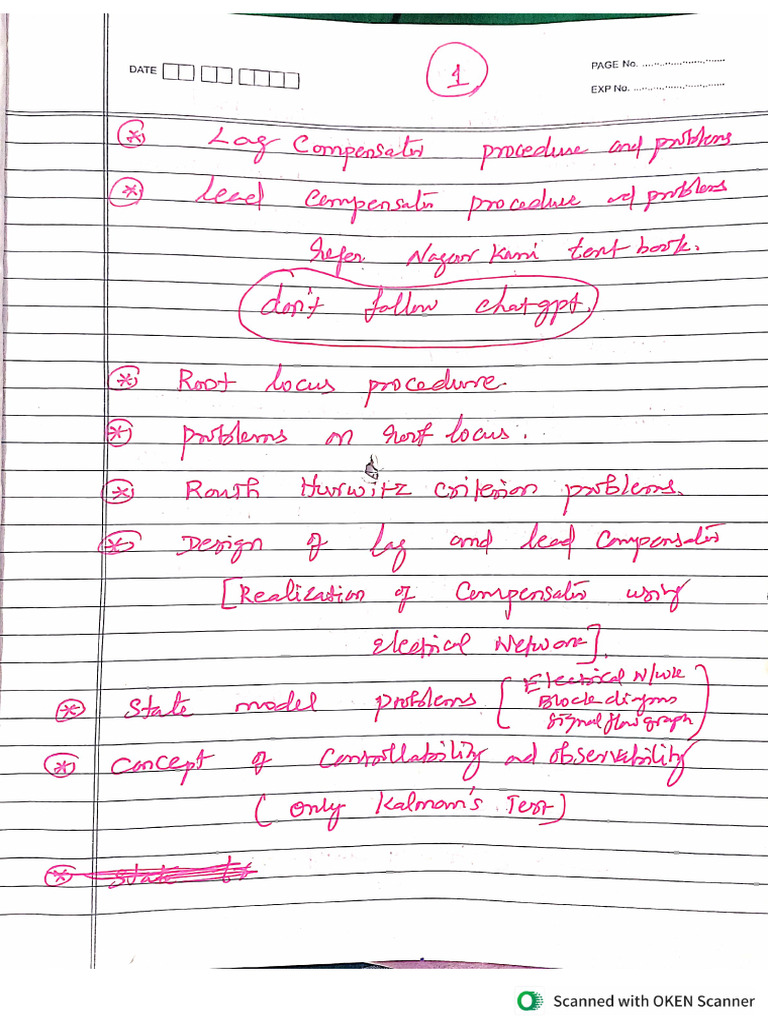 DATE
1
PAGE No.
EXP No.
Lag Compensator procedure and problems
lead compensator procedure and problems
refer Nagoor Kani text book.
don't follow chatgpt.
Root locus procedure
problems on root locus.
Routh Hurwitz criterion problems.
Design of lag and lead Compensator
[Realization of Compensator using
electrical Network].
State model problems (Electrical N/work
Block diagrams
Signal flow graph)
Concept of Controllability and observability
(only Kalman's Test)
Scanned with OKEN Scanner